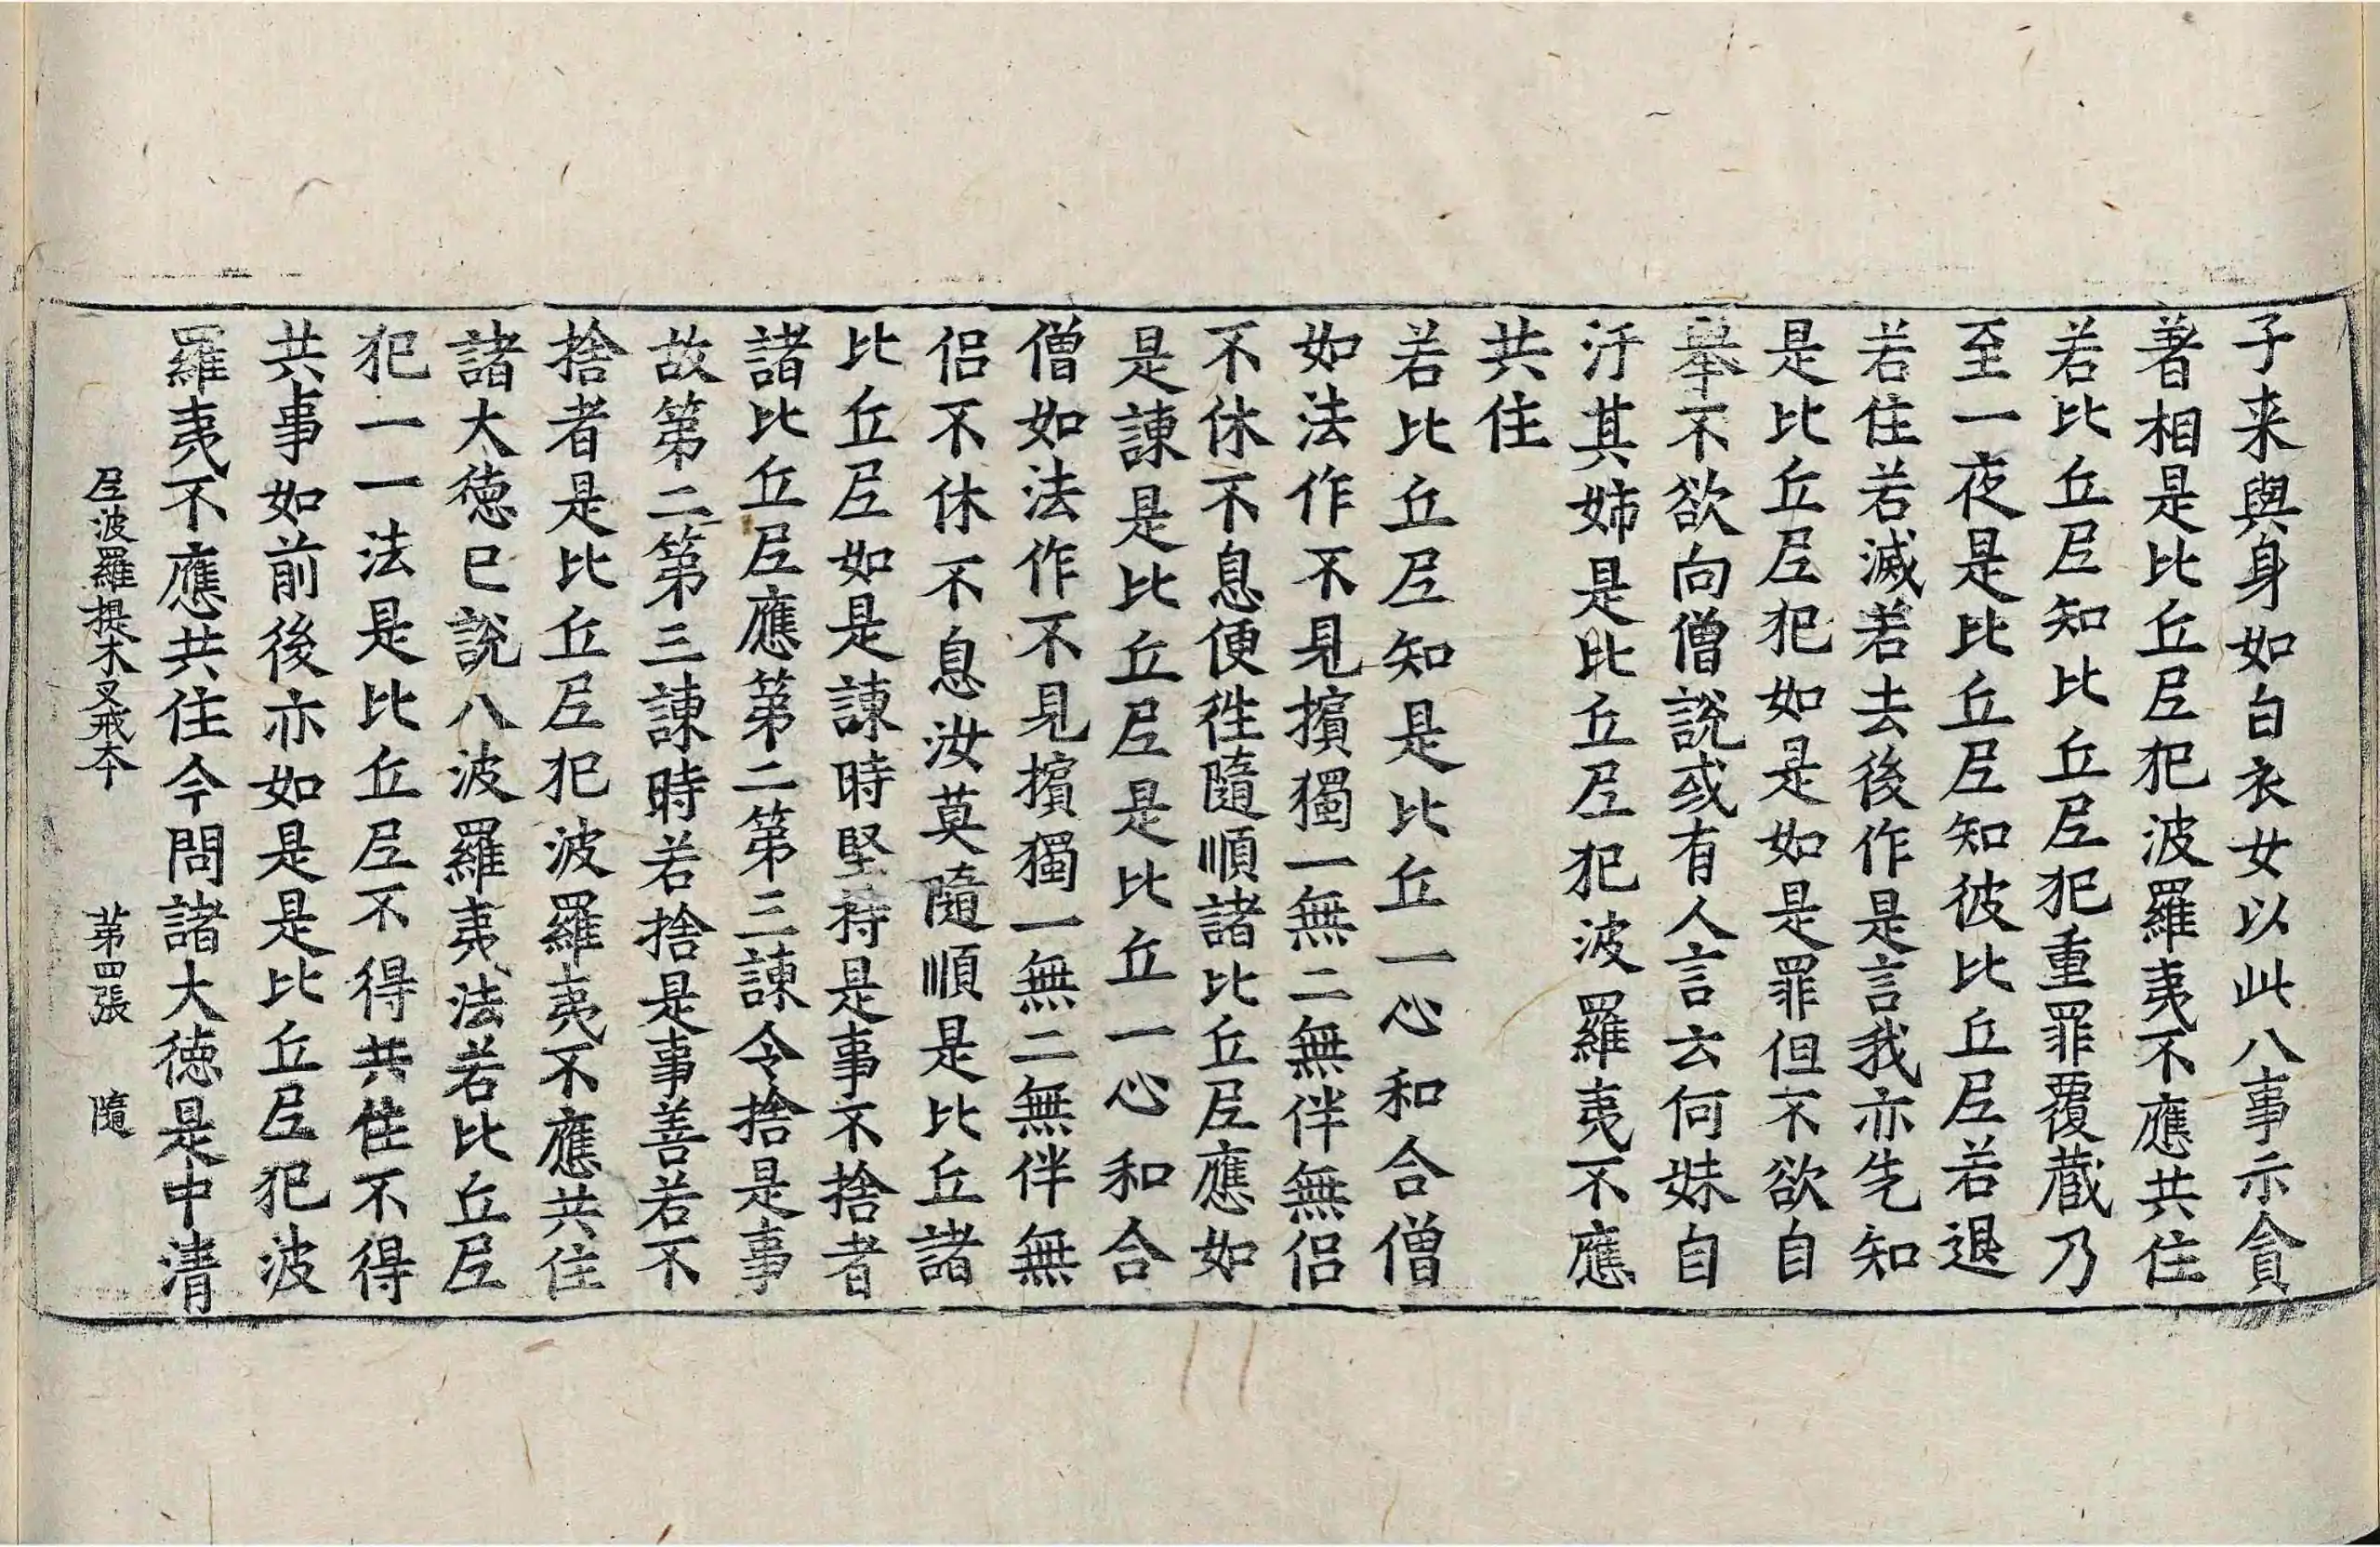 子来與身如白衣女以此八事示貪
著相是比丘尼犯波羅夷不應共住
若比丘尼知比丘尼犯重罪覆藏乃
至一夜是比丘尼知彼比丘尼若退
若住若滅若去後作是言我亦先知
是比丘尼犯如是如是罪但不欲自
舉不欲向僧說或有人言云何妹自
汙其姉是比丘尼犯波羅夷不應
共住
若比丘尼知是比丘一心和合僧
如法作不見擯獨一無二無伴無侣
不休不息便徃隨順諸比丘尼應如
是諫是比丘尼是比丘一心和合
僧如法作不見擯獨一無二無伴無
侣不休不息汝莫隨順是比丘諸
比丘尼如是諫時堅持是事不捨者
諸比丘尼應第二第三諫令捨是事
故第二第三諫時若捨是事善若不
捨者是比丘尼犯波羅夷不應共住
諸大德已說八波羅夷法若比丘尼
犯一一法是比丘尼不得共住不得
共事如前後亦如是是比丘尼犯波
羅夷不應共住今問諸大德是中清
尼波羅提木叉戒本 第四張 隨